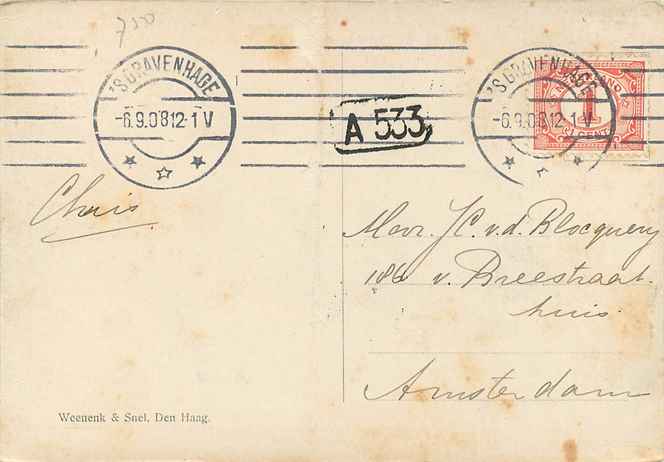 7500
'S GRAVENHAGE
-6.9.08 12-1 V
A 533
'S GRAVENHAGE
-6.9.08 12-1 V
1
Chris.
Mevr. J.C. v.d. Blocquery
186 v. Breestraat.
huis.
Amsterdam
Weenenk & Snel, Den Haag.